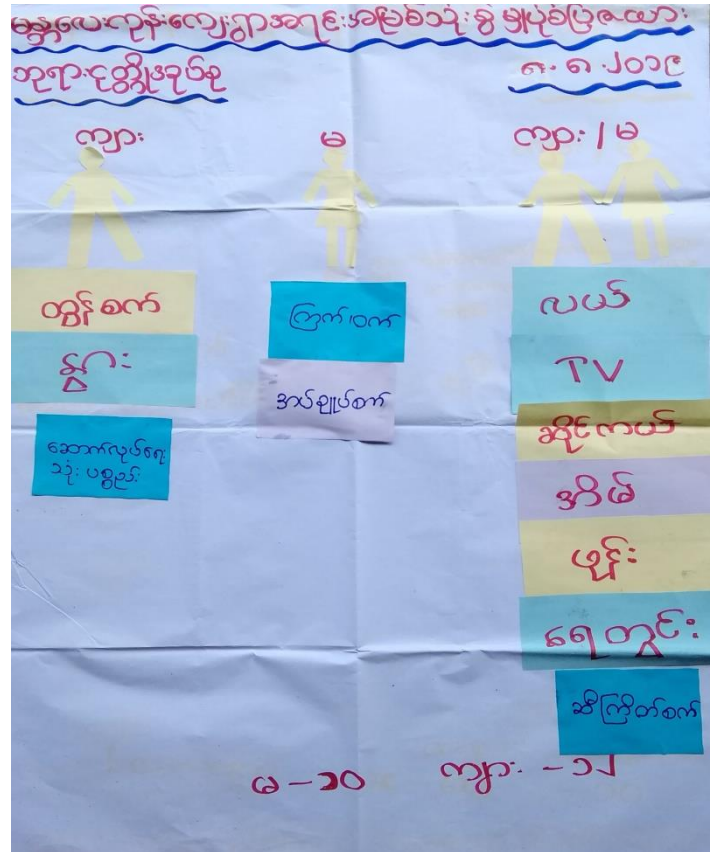 မန္တလေးကုန်းကျေးရွာအရင်းအမြစ်သုံးစွဲမှုပုံစံပြဇယား
ဘုရားငုတ္တိုအုပ်စု ၈.၈.၂၀၁၉
ကျား မ ကျား / မ
ထွန်စက်
နွား
ဆောက်လုပ်ရေး
သုံးပစ္စည်း
ကြက်၊ဝက်
အပ်ချုပ်စက်
လယ်
TV
ဆိုင်ကယ်
အိမ်
ဖုန်း
ရေတွင်း
ဆီကြိတ်စက်
မ - ၁၀ ကျား - ၁၂